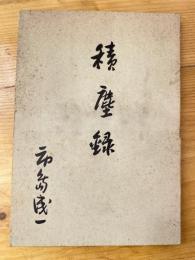 積塵録
市島成一